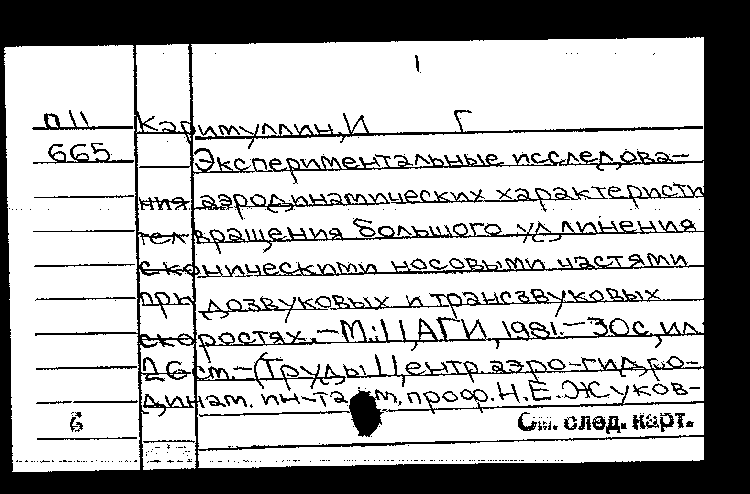 1
П11 Каримуллин, И Г
665 Экспериментальные исследова-
ния аэродинамических характеристи
тел вращения большого удлинения
с коническими носовыми частями
при дозвуковых и трансзвуковых
скоростях.-М.: ЦАГИ, 1981.-30с, ил.
26см.-(Труды Центр. аэро-гидро-
динам. ин-та им. проф. Н. Е. Жуков-
6 См. след. карт.